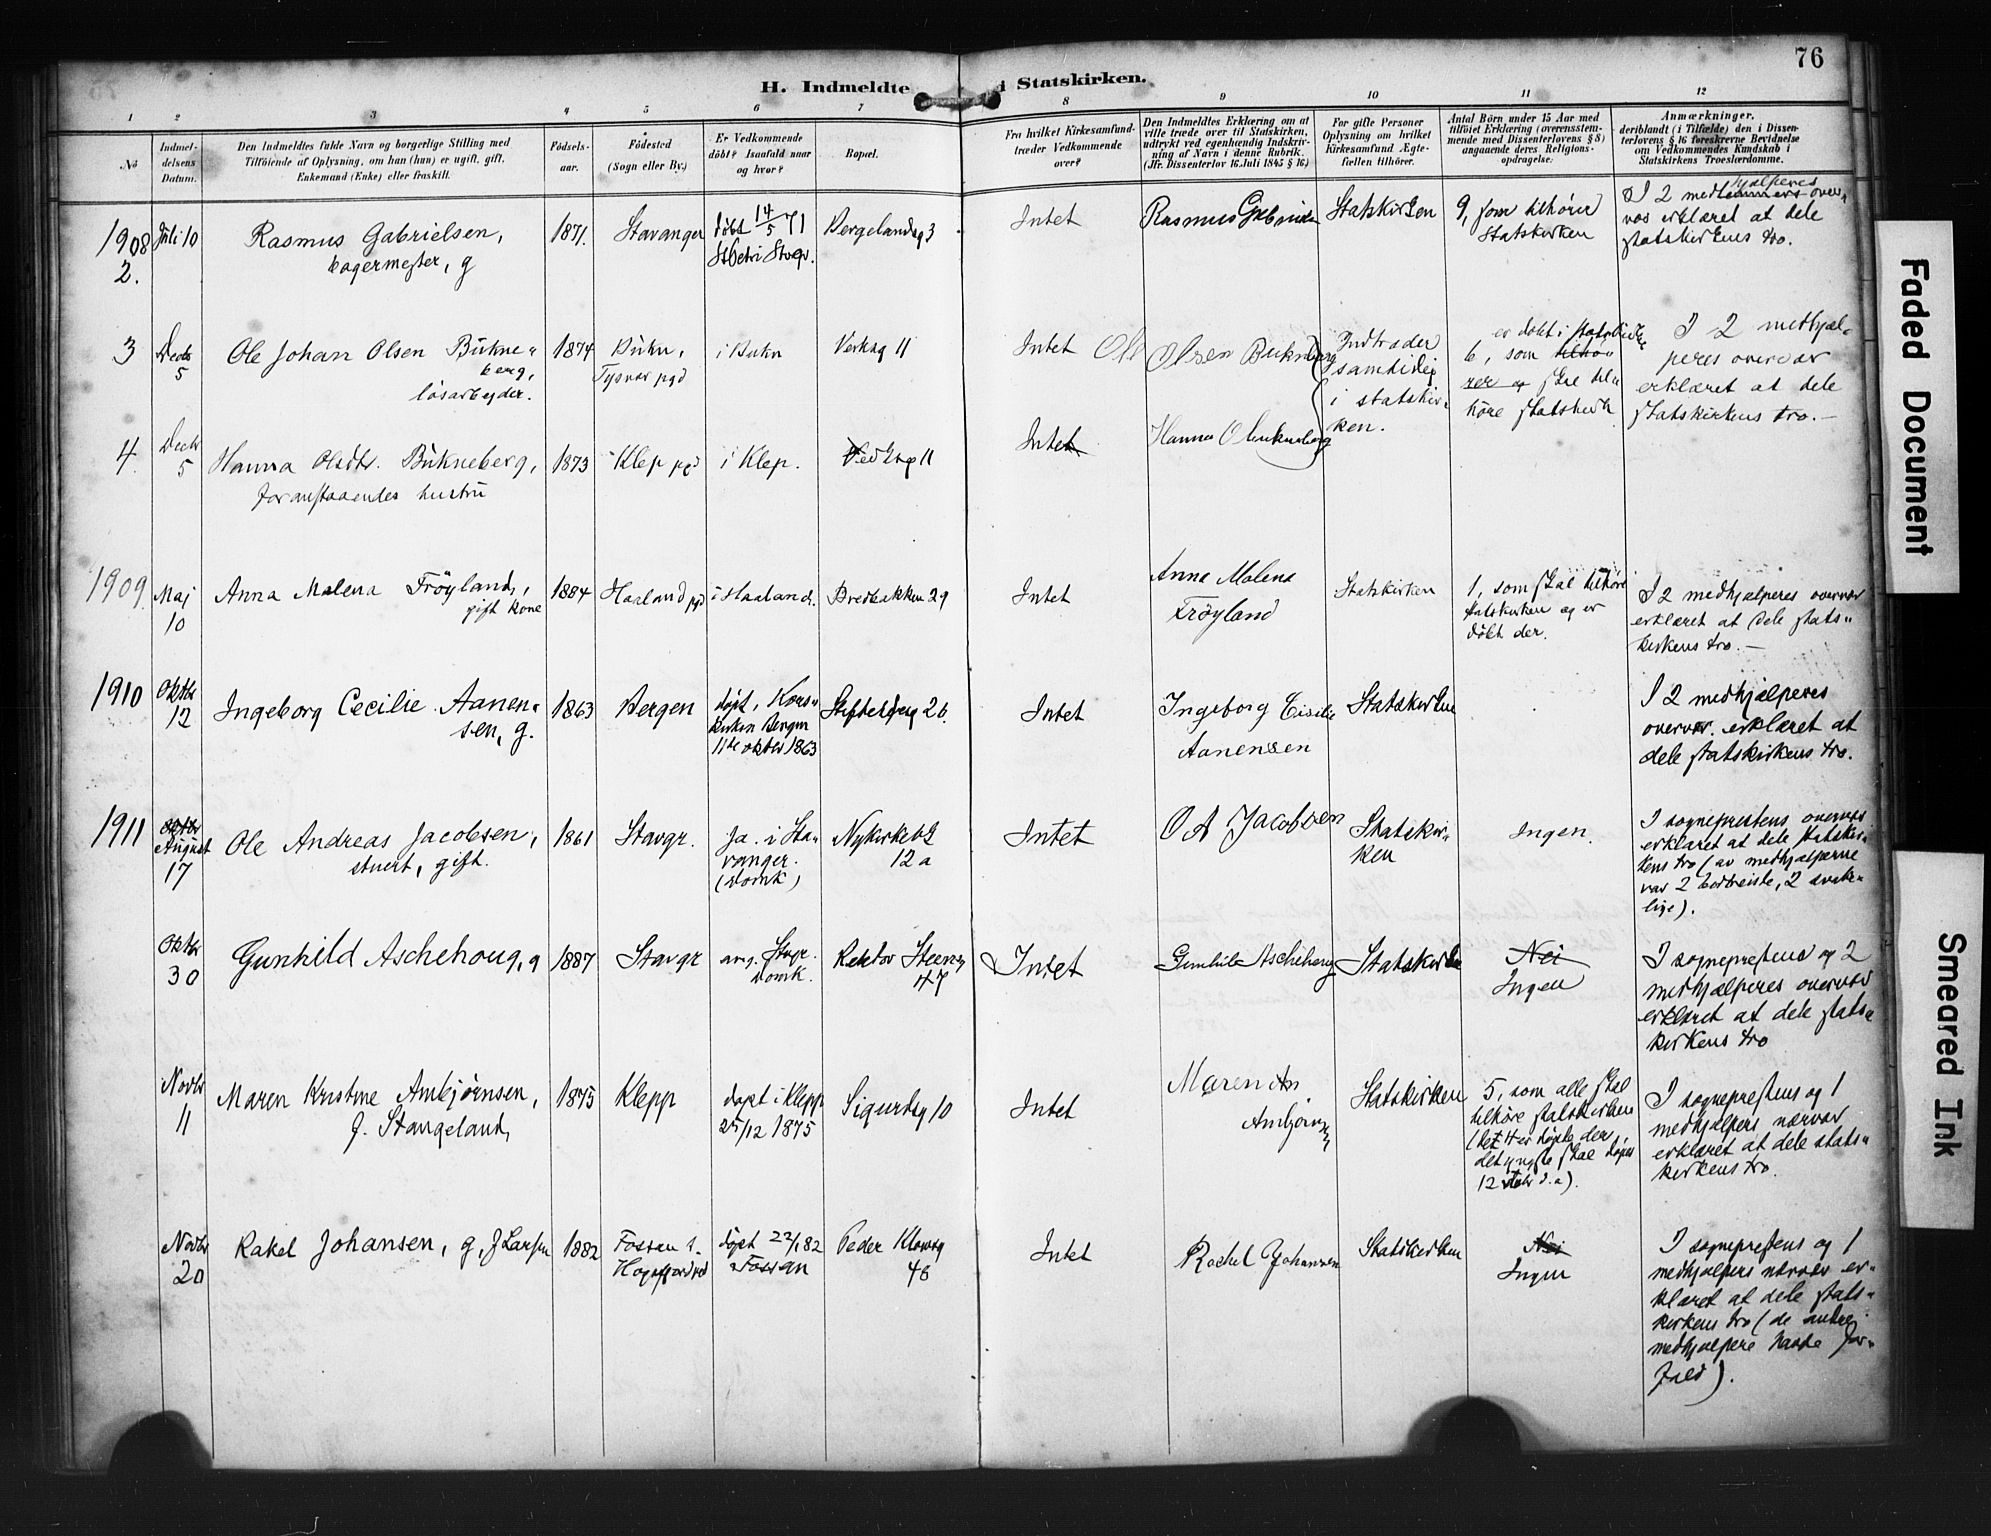 76
H. Indmeldte i Statskirken.
1 2 3 4 5 6 7 8 9 10 11 12
No
Indmel-
delsens
Datum.
Den Indmeldtes fulde Navn og borgerlige Stilling med
Tilföiende af Oplysning, om han (hun) er ugift, gift,
Enkemand (Enke) eller fraskilt.
Födsels-
aar.
Födested
(Sogn eller By.)
Er Vedkommende
döbt? Isaafald naar
og hvor?
Bopæl.
Fra hvilket Kirkesamfund-
træder Vedkommende
over?
Den Indmeldtes Erklæring om at
ville træde over til Statskirken,
udtrykt ved egenhændig Indskriv-
ning af Navn i denne Rubrik.
(Jfr. Dissenterlov 16 Juli 1845 § 16)
For gifte Personer
Oplysning om hvilket
Kirkesamfund Ægte-
fællen tilhörer.
Antal Börn under 15 Aar med
tilföiet Erklæring (overensstem-
mende med Dissenterlovens § 8)
angaaende deres Religions-
opdragelse.
Anmærkninger,
deriblandt (i Tilfælde) den i Dissen-
terlovens § 16 foreskrevne Bevidnelse
om Vedkommendes Kundskab i
Statskirkens Troeslærdomme.
1908
2.
Juli 10
Rasmus Gabrielsen,
bagermester, g
1871.
Stavanger
döbt 14/5 71
St Petri Stvgr.
Bergelandsg 3
Intet
Rasmus Gabrielsen
Statskirken
9, som tilhörer
Statskirken
I 2 medhjælperes over-
vær erklæret at dele
statskirkens tro.
3
Decbr
5
Ole Johan Olsen Bukne-
berg,
lösarbeyder.
1874
Bukn,
Tysvær pgd
i Bukn
Verksg 11
Intet
Ole Olsen Bukneberg
Indtræder
samtidig
i statskir-
ken.
er döbt i statskirke
6, som tilhö
rer og skal til-
höre statskirk
I 2 medhjæl-
peres overvær
erklæret at dele
statskirkens tro.-
4.
Decbr
5
Hanna Olsdtr. Bükneberg,
foranstaaendes hustru
1873
Klep pgd
i Klep.
Vedksg 11
Intet
Hanna O Bukneberg
1909.
Maj
10
Anna Malena Fröyland,
gift kone
1884
Haaland pgd
i Haaland.
Bredbakken 29
Intet
Anna Malena
Fröyland
Statskirken
1, som skal tilhöre
statskirken og er
döbt der.
I 2 medhjælperes overvær
erklæret at dele stats-
kirkens tro.-
1910
Oktbr
12
Ingeborg Cecilie Aanen-
sen, g.
1863
Bergen
döpt, Kors-
kirken Bergen
11te oktbr 1863
26.
Intet
Ingeborg Cicilie
Aanensen
Statskirken
I 2 medhjælperes
overvær erklæret at
dele statskirkens tro.
1911
August
17
Ole Andreas Jacobsen,
stuert, gift.
1861
Stavgr.
Ja. i Sta-
vanger.
(Domk)
Nykirkebk
12 a
Intet
O A Jacobsen
Statskir-
ken
Ingen.
I sogneprestens overvær
erklæret at dele statskir-
kens tro (av medhjælperne
var 2 bortreiste, 2 svake-
lige).
Oktbr
30
Gunhild Aschehoug, g
1887
Stavgr
ang. Stvgr.
Domk.
Rektor Steensg
47
Intet
Gunhild Aschehoug
Statskirken
Nei
Ingen
I sogneprestens og 2
medhjælperes overvær
erklæret at dele stats-
kirkens tro
Novbr
11
Maren Kristine Ambjörnsen,
f. Stangeland,
1875
Klepp
døpt i Klepp
25/12 1875
Sigurdsg 10
Intet
Maren
Ambjörnsen
Statskirken
5, som alle skal
tilhöre statskirken
(de 4 er døpte der,
det yngste skal døpes
12 d.a).
I sogneprestens og 1
medhjælpers nærvær
erklæret at dele stats-
kirkens tro.
Novbr
20
Rakel Johansen, g, f Larsen
1882
Fossan i
Høgsfjord
døpt 22/1 82
Fossan
Peder Klowsg
46
Intet
Rachel Johansen
Statskirken
Nei
Ingen
I sogneprestens og 1
medhjælpers nærvær er-
klæret at dele stats-
kirkens tro (de andre
medhjælpere havde for-
fald).
Faded Document
Smeared Ink